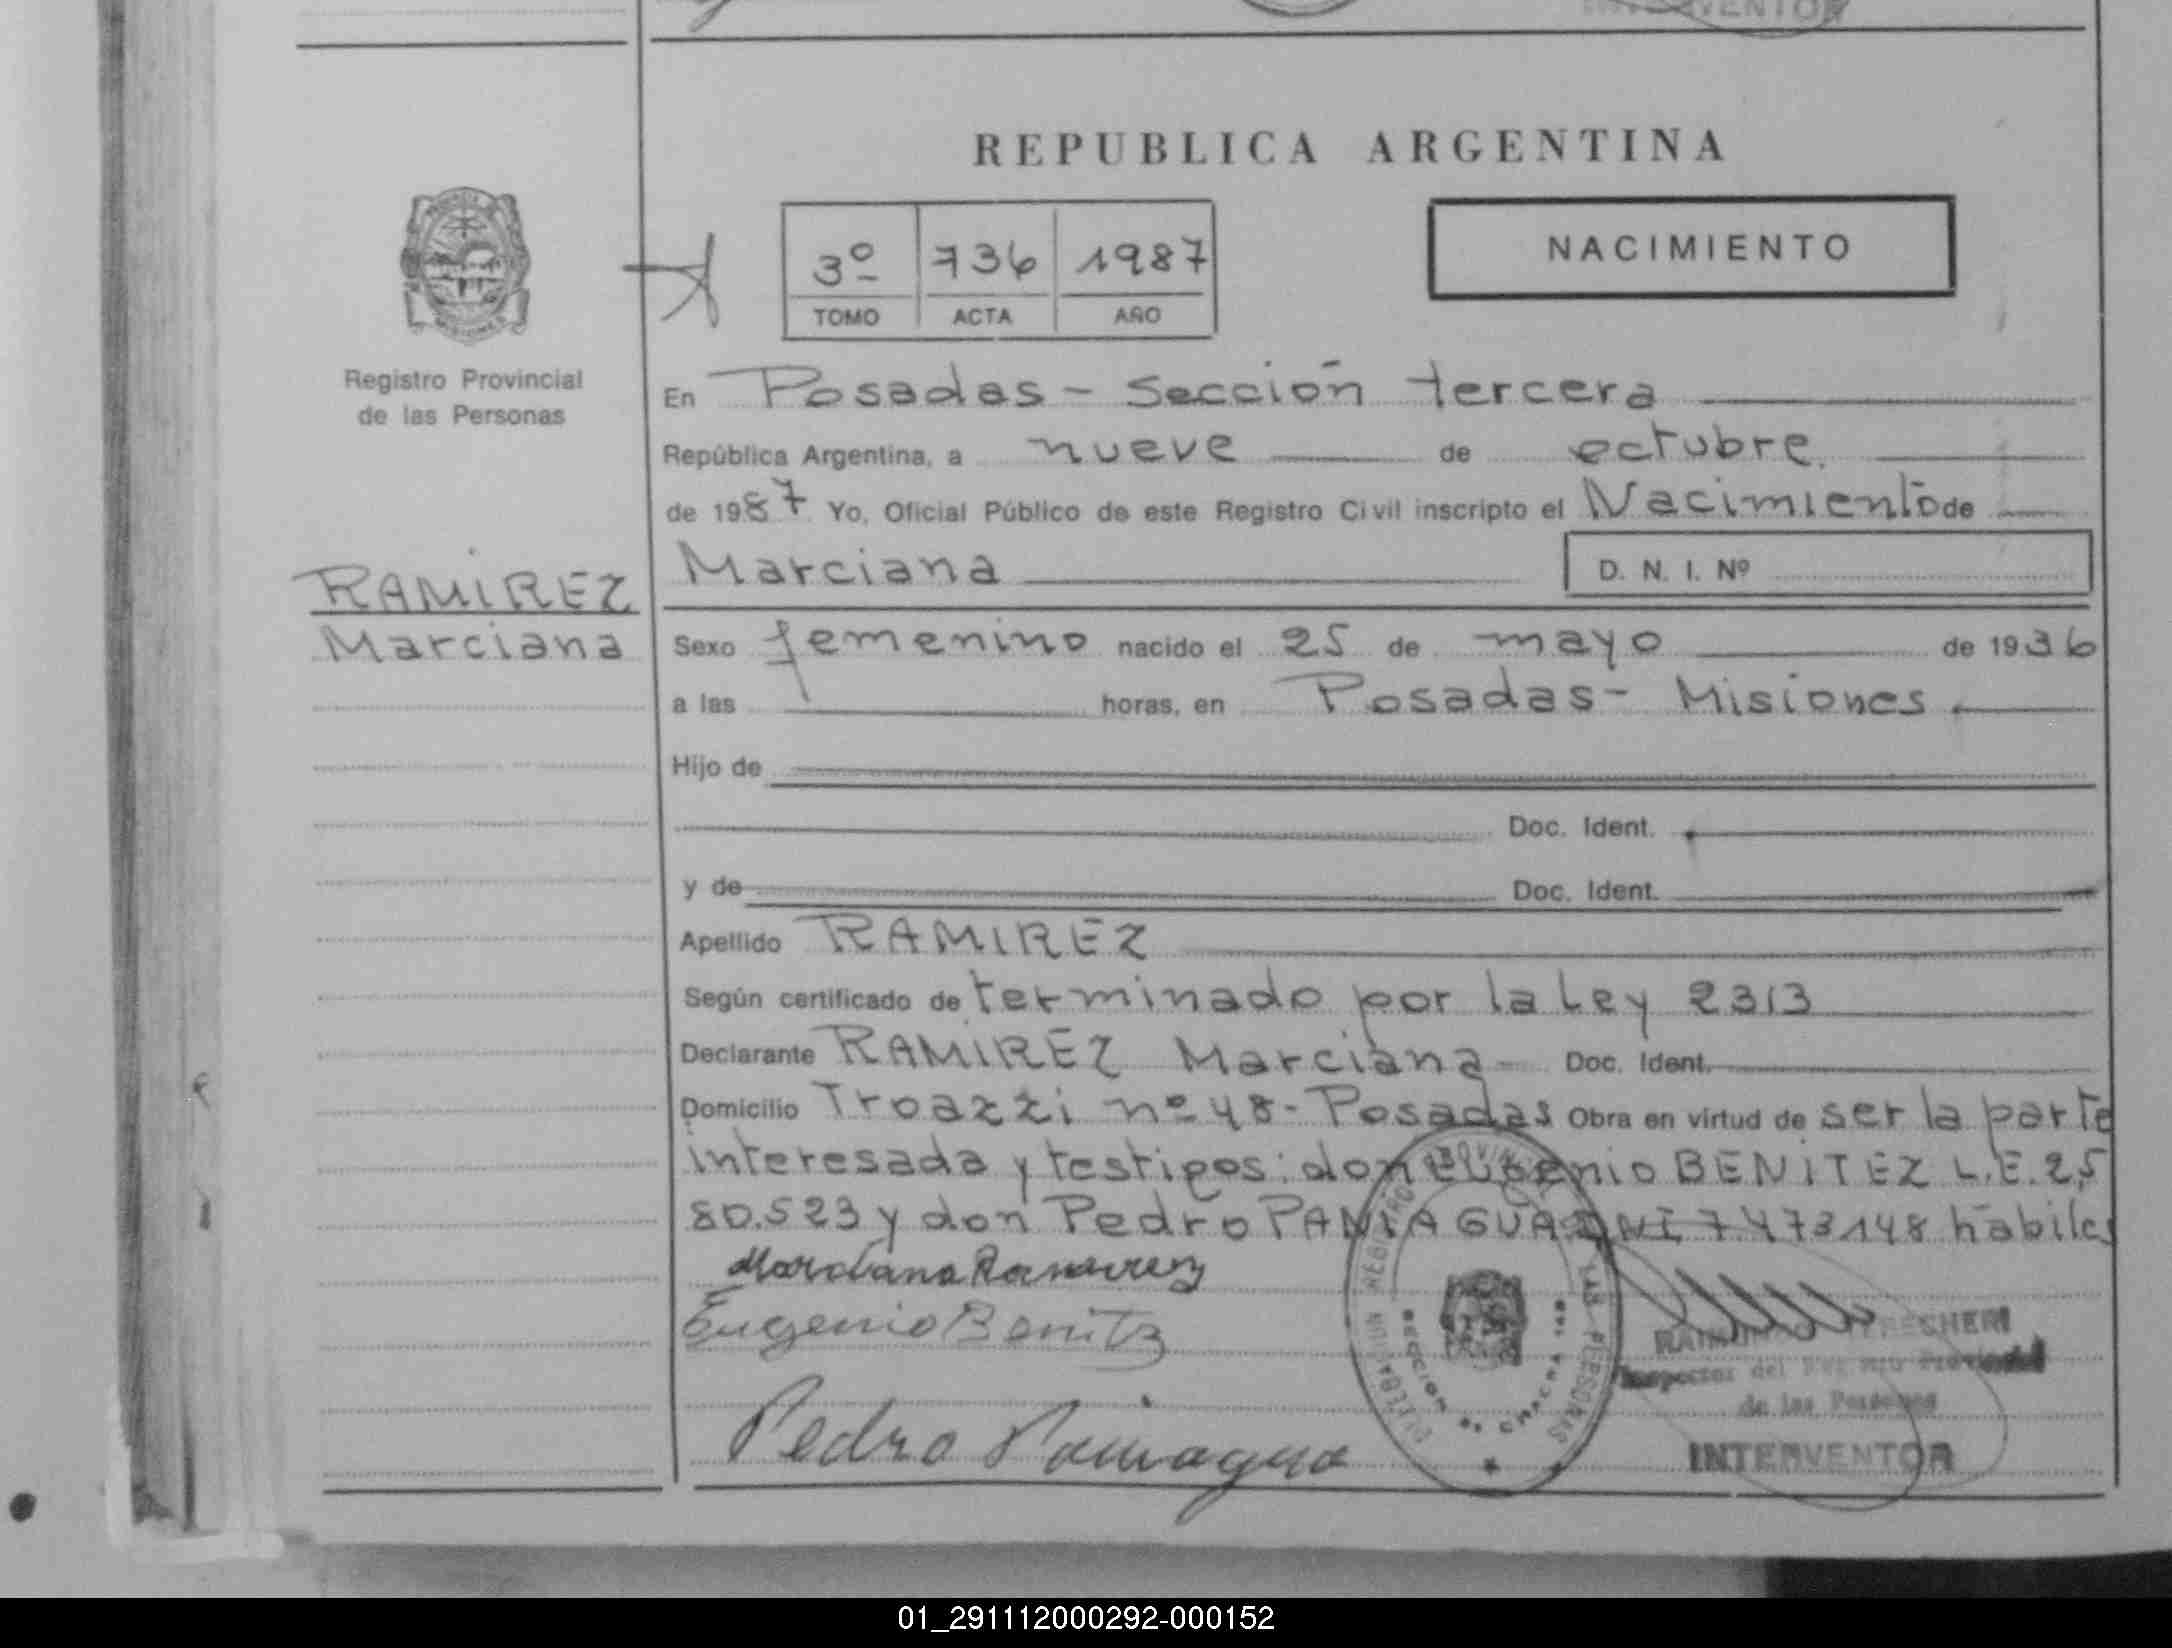 INTERVENTOR
REPUBLICA ARGENTINA
3º 736 1987
TOMO ACTA AÑO
NACIMIENTO
Registro Provincial
de las Personas
En Posadas - Sección tercera
República Argentina, a nueve de octubre.
de 1987 Yo, Oficial Público de este Registro Civil inscripto el Nacimiento de
Marciana D. N. I. Nº
RAMIREZ
Marciana
Sexo femenino nacido el 25 de mayo de 1936
a las horas, en Posadas - Misiones.
Hijo de
Doc. Ident.
y de Doc. Ident.
Apellido RAMIREZ
Según certificado de terminado por la Ley 2313
Declarante RAMIREZ Marciana - Doc. Ident.
Domicilio Troazzi nº 48 - Posadas Obra en virtud de ser la parte
interesada y testigos: don Eugenio BENITEZ L.E. 2,5
80.523 y don Pedro PANIAGUA DNI 7.473148 habiles
Marciana Ramirez
Eugenio Benitz
Pedro Painagua
SECCION
LAS PERSONAS
Inspector del Provincial
de las Personas
INTERVENTOR
01_291112000292-000152